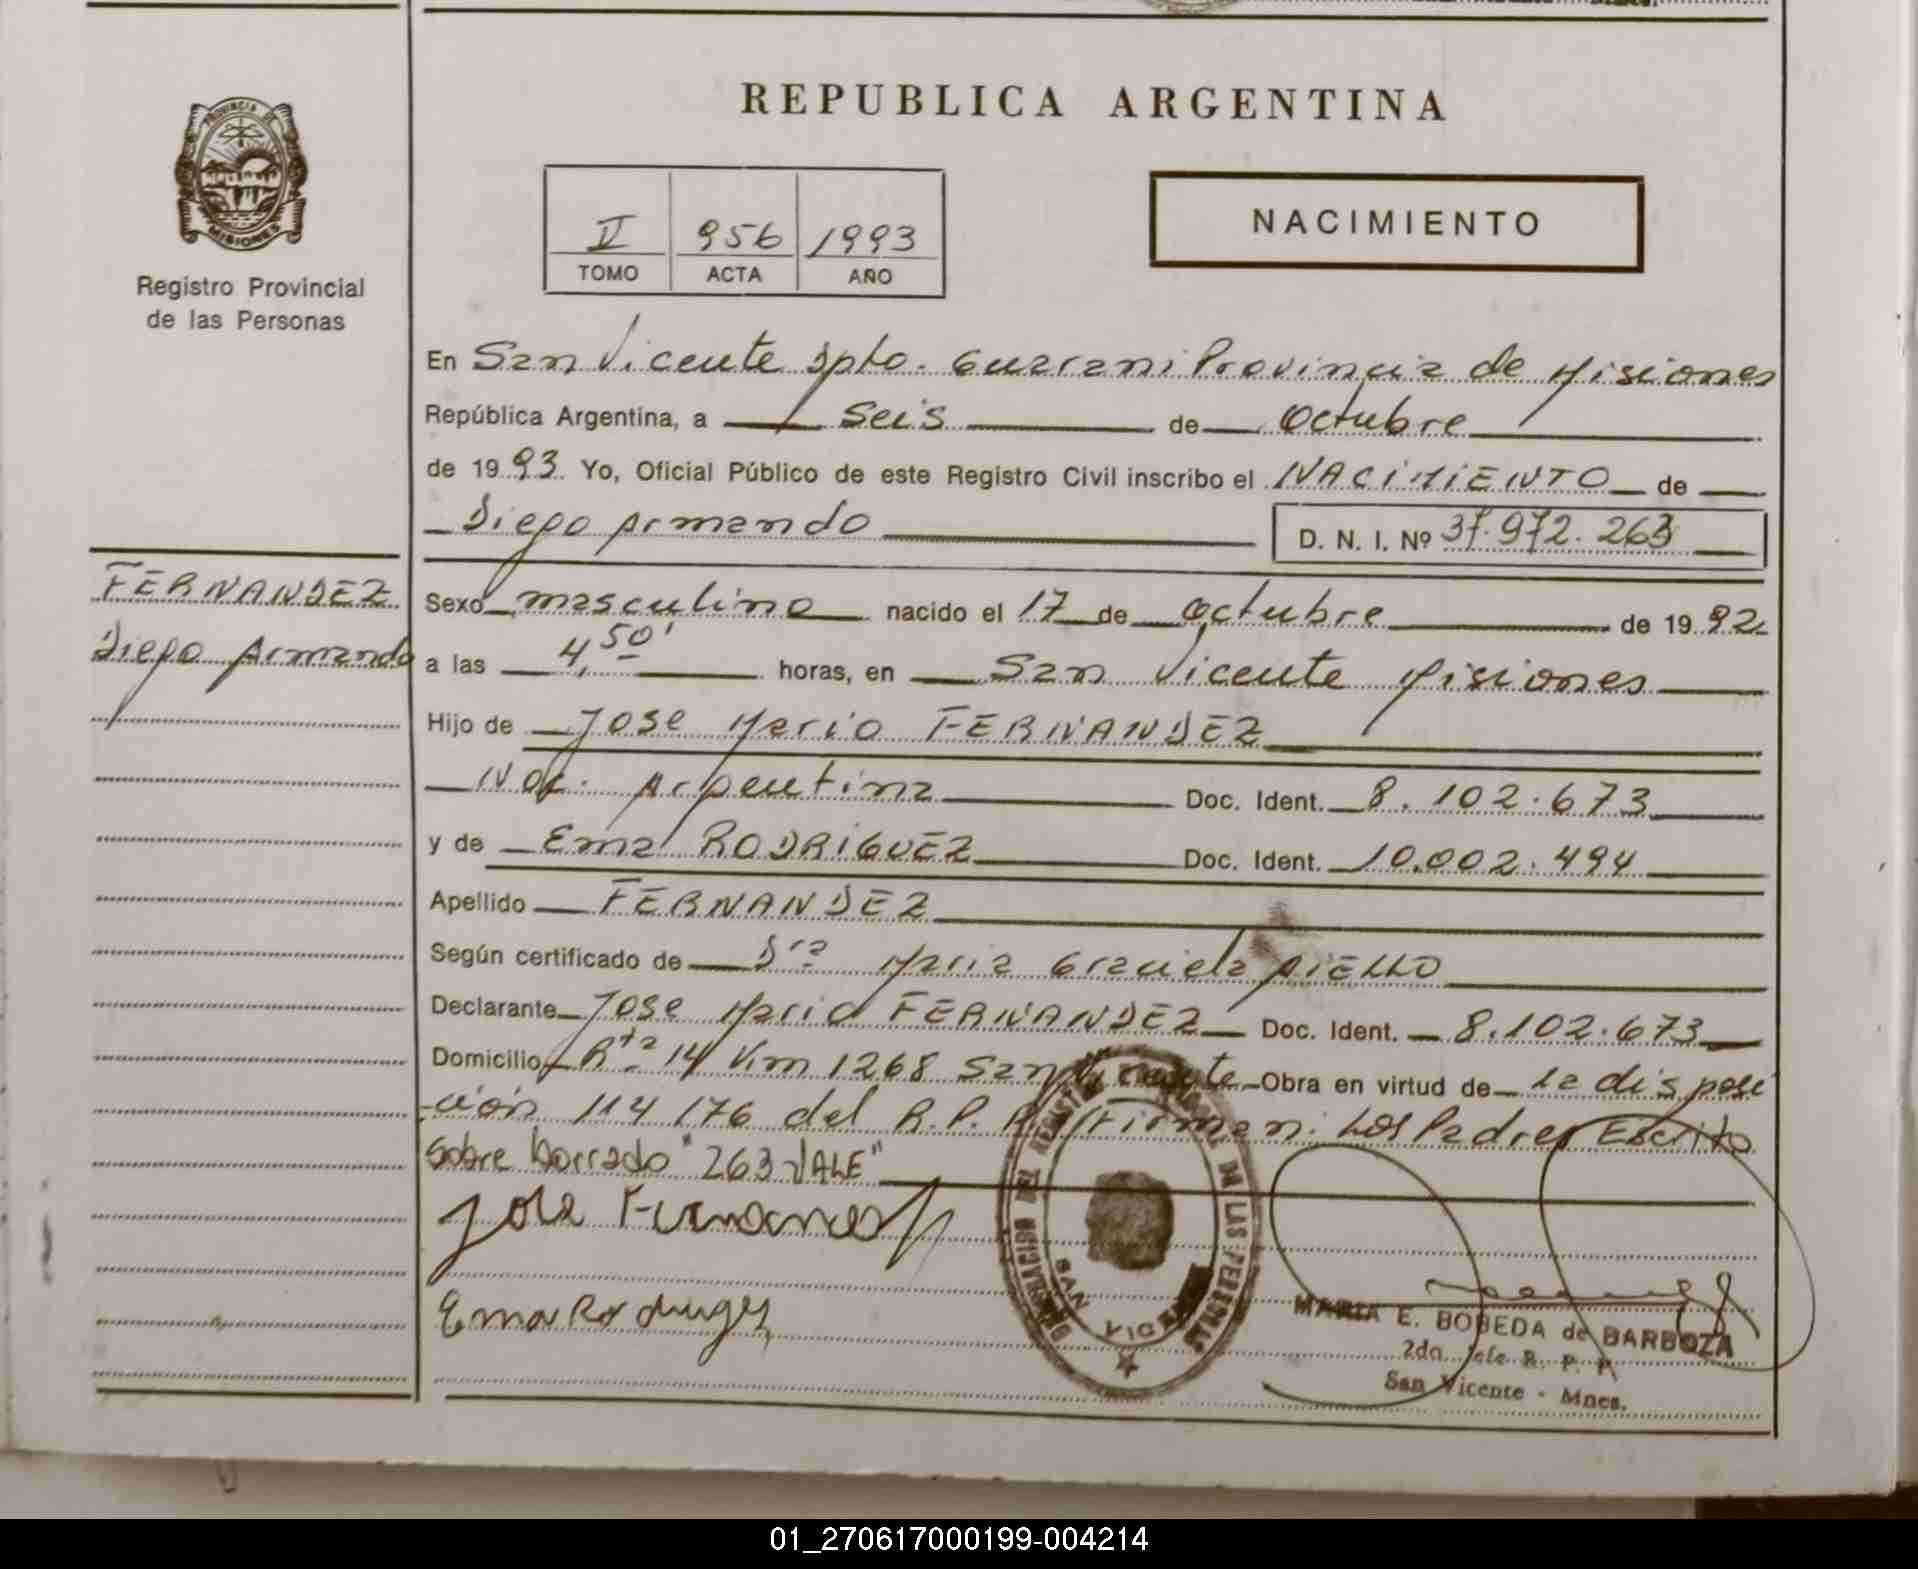 REPUBLICA ARGENTINA
PROVINCIA DE
MISIONES
Registro Provincial
de las Personas
II 956 1993
TOMO ACTA AÑO
NACIMIENTO
En San Vicente Dpto. Guarani Provincia de Misiones
República Argentina, a seis de Octubre
de 1993. Yo, Oficial Público de este Registro Civil inscribo el NACIMIENTO de
Diego Armando D. N. I. Nº 37.972.263
FERNANDEZ
Diego Armando
Sexo masculino nacido el 17 de octubre de 1992
a las 4,50' horas, en San Vicente Misiones
Hijo de Jose Mario FERNANDEZ
Nac. Argentina Doc. Ident. 8.102.673
y de Ema RODRIGUEZ Doc. Ident. 10.002.494
Apellido FERNANDEZ
Según certificado de Dra Maria Graciela AIELLO
Declarante Jose Mario FERNANDEZ Doc. Ident. 8.102.673
Domicilio Rta 14 Km 1268 San Vicente Obra en virtud de la disposi
ción 114/76 del R.P.P. Firman: Los Padres Escrito
Sobre borrado "263 VALE"
Jose Fernandes
Ema Rodrugez
DELEGACION DEL REGISTRO PROVINCIAL DE LAS PERSONAS
SAN VICENTE
MARIA E. BOBEDA de BARBOZA
2da. Jefe R. P. P.
San Vicente - Mnes.
01_270617000199-004214